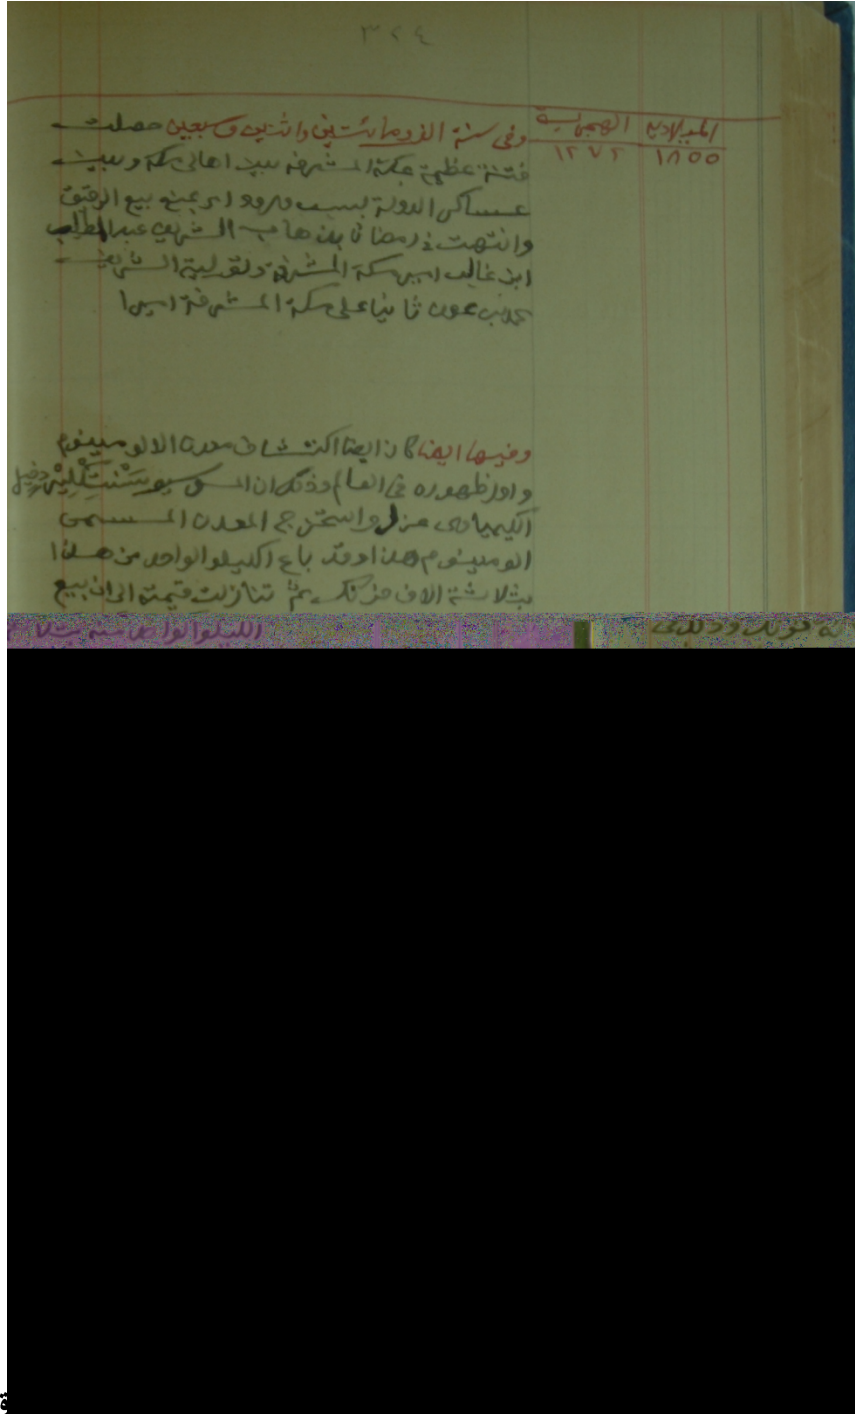 ٣٢٤
الميلادية الهجرية
١٨٥٥ ١٢٧٢
وفى سنة الف ومائتين واثنين وسبعين حصلت
فتنة عظيمة بمكة المشرفة بين اهالى مكة وبين
عساكر الدولة بسبب ورود امر بمنع بيع الرقيق
وانتهت فى رمضان بذهاب الشريف عبد المطلب
ابن غالب امير مكة المشرفة وتولية الشريف
محمد بن عون ثانيا على مكة المشرفة اميرا
وفيها ايضا كان ايضا اكتشاف معدن الالومينوم
واول ظهوره فى العالم وذلك ان المسيو
الكيمياوى عزل واستخرج المعدن المسمى
الومينوم هذا وقد باع الكيلو الواحد من هذا
بثلاثة الاف فرنك ثم تنازلت قيمته الى ان بيع
الكيلو الواحد منه
ة